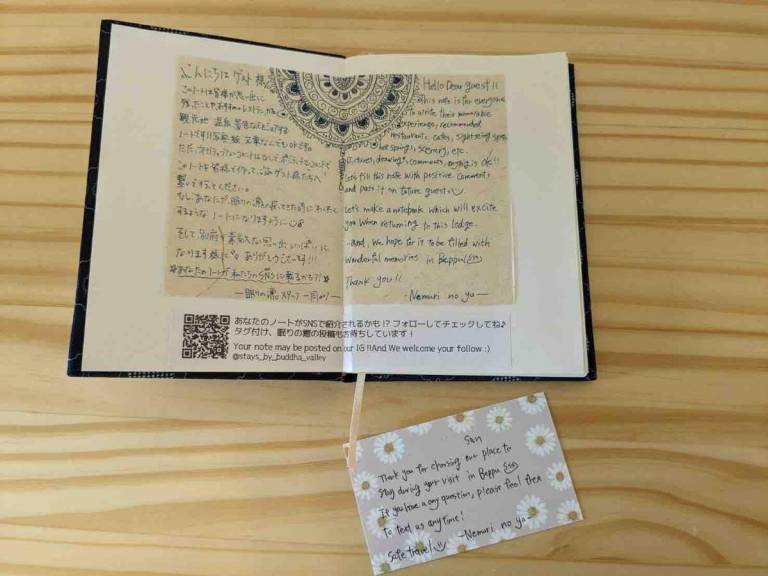 こんにちは ゲスト様
このノートは皆様が思い出に
残ったことや、おすすめのレストラン、カフェ
観光地 温泉 景色などを記す
ノートです!! 写真 絵 文章なんでもOKです。
このノートを皆様で作って、次のゲスト様たちへ
繋いで行ってください。
するような ノートになりますように
なります様に。 ありがとうございます!!!
あなたのノートが私たちのSNSに載るかも?!
—眠りの湯スタッフ 一同より—
Hello Dear guest!!
This note is for everyone
to write their memorable
experiences, recommended
restaurants, cafes, sightseeing spots
hot springs, scenery, etc.
Pictures, drawings, comments, anything is OK!!
Let's fill this note with positive comments
and pass it on future guests
Let's make a notebook which will excite
you when returning to this lodge.
and, we hope for it to be filled with
wonderful memories in Beppu
Thank you!!
-Nemuri no yu—
あなたのノートがSNSで紹介されるかも!? フォローしてチェックしてね♪
タグ付け、眠りの湯の投稿もお待ちしています!
Your note may be posted on our IG !!And We welcome your follow :)
@stays_by_buddha_valley
San
Thank you for choosing our place to
stay during your visit in Beppu
If you have a any question, please feel free
to text us anytime!
Safe travel -Nemuri no yu-